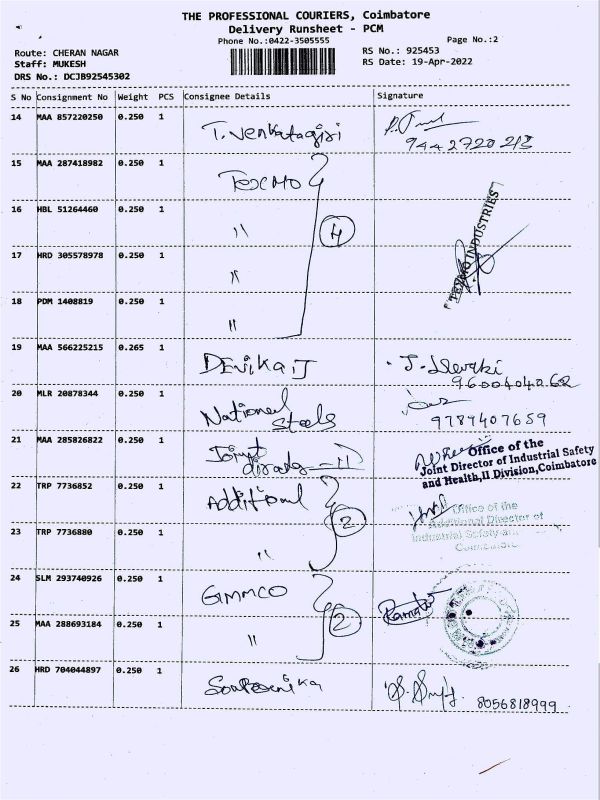 THE PROFESSIONAL COURIERS, Coimbatore
Delivery Runsheet - PCM
Phone No.:0422-3505555
Page No.:2
Route: CHERAN NAGAR
RS No.: 925453
Staff: MUKESH
RS Date: 19-Apr-2022
DRS No.: DCJB92545302
S No Consignment No Weight PCS Consignee Details Signature
14 MAA 857220250 0.250 1 T. Venkatagiri
9442720213
15 MAA 287418982 0.250 1 TEXMO
16 HBL 51264460 0.250 1 " 4
TEXMO INDUSTRIES
17 HRD 305578978 0.250 1 "
18 PDM 1408819 0.250 1 "
19 MAA 566225215 0.265 1 DEVIKA J J. Devaki
9600404062
20 MLR 20878344 0.250 1 National Steels
9789407659
21 MAA 285826822 0.250 1 Joint II
Office of the
Joint Director of Industrial Safety
and Health,II Division,Coimbatore
22 TRP 7736852 0.250 1 Additional 2
Office of the
Additional Director of
Industrial Safety an
23 TRP 7736880 0.250 1 "
24 SLM 293740926 0.250 1 GIMMCO
25 MAA 288693184 0.250 1 " 2
26 HRD 704044897 0.250 1
8056818999